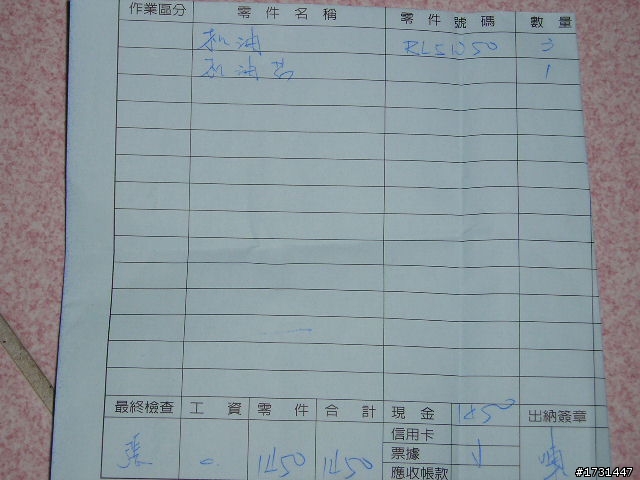 作業區分 零件名稱 零件號碼 數量
机油 RL51050 3
机油芯 1
最終檢查 工資 零件 合計 現金 1450 出納簽章
信用卡
張 0. 1450 1450 票據
應收帳款
#1731447